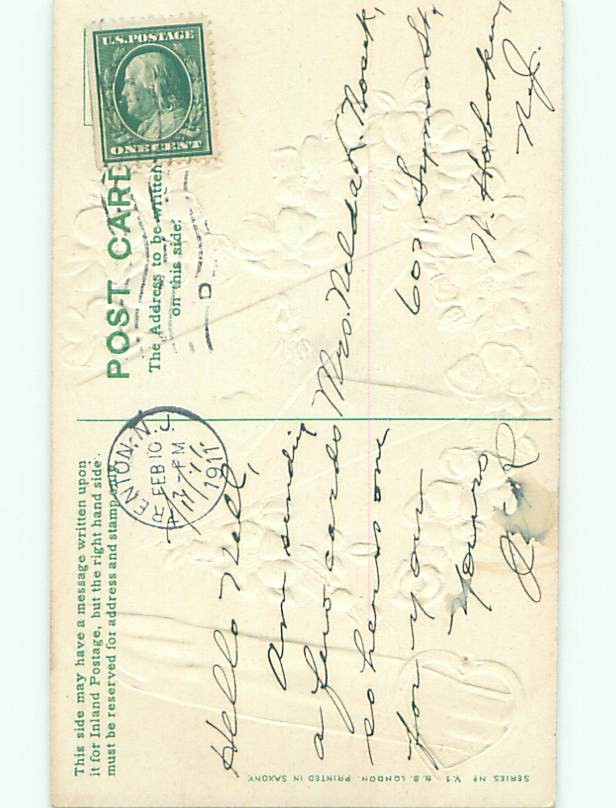 This side may have a message written upon
it for Inland Postage, but the right hand side
must be reserved for address and stamp only.
POST CARD
The Address to be written
on this side.
U.S. POSTAGE
ONE CENT
TRENTON, N.J.
FEB 10
12-PM
1911
D
Hello Nell,
Am sending
a few cards
so heres one
for you
Yours
Mrs. Nelda
602
W. Hoboken,
N.J.
SERIES Nº V.1 B.B. LONDON. PRINTED IN SAXONY.